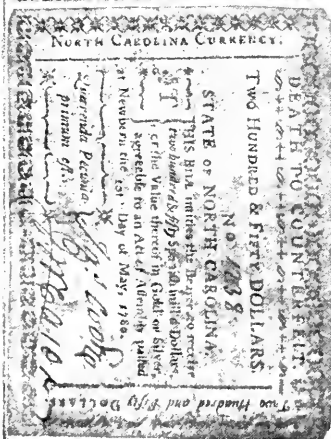 NORTH CAROLINA CURRENCY.
DEATH TO COUNTERFEIT
TWO HUNDRED & FIFTY DOLLARS
No
STATE OF NORTH CAROLINA
THIS Bill intitles the Bearer to receive
two hundred & fifty Spanish milled Dollars
or the Value thereof in Gold or Silver
agreeable to an Act of Assembly passed
at Newbern the Day of May, 1780.
Quærenda Pecunia
primum est.
Two Hundred and Fifty DOLLARS.